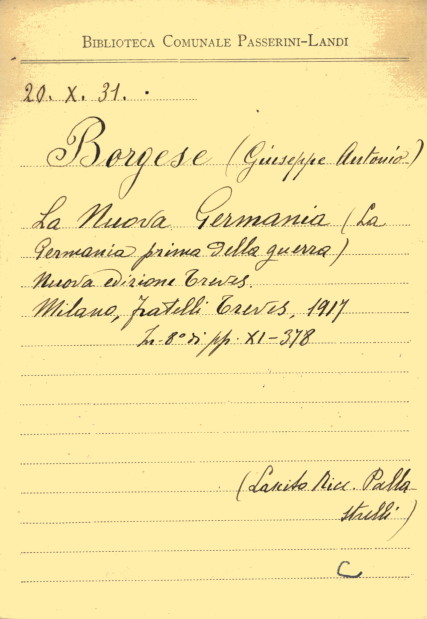 BIBLIOTECA COMUNALE PASSERINI-LANDI
20. X. 31.
Borgese (Giuseppe Antonio)
La Nuova Germania (La
Germania prima della guerra)
Nuova edizione Treves.
Milano, fratelli Treves, 1917
In 8° di pp. XI-378
(Lascito Ricc. Palla
strelli)
C